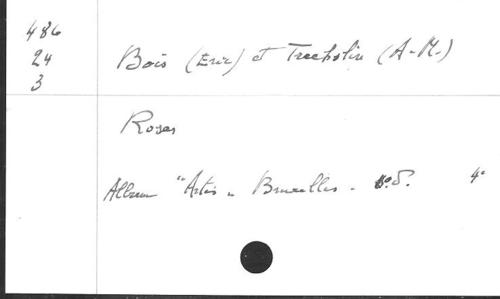 486
24
3
Bois (Eric) et Trechslin (A-M.)
Roses
Album "Artis - Bruxelles - s.d. 4°